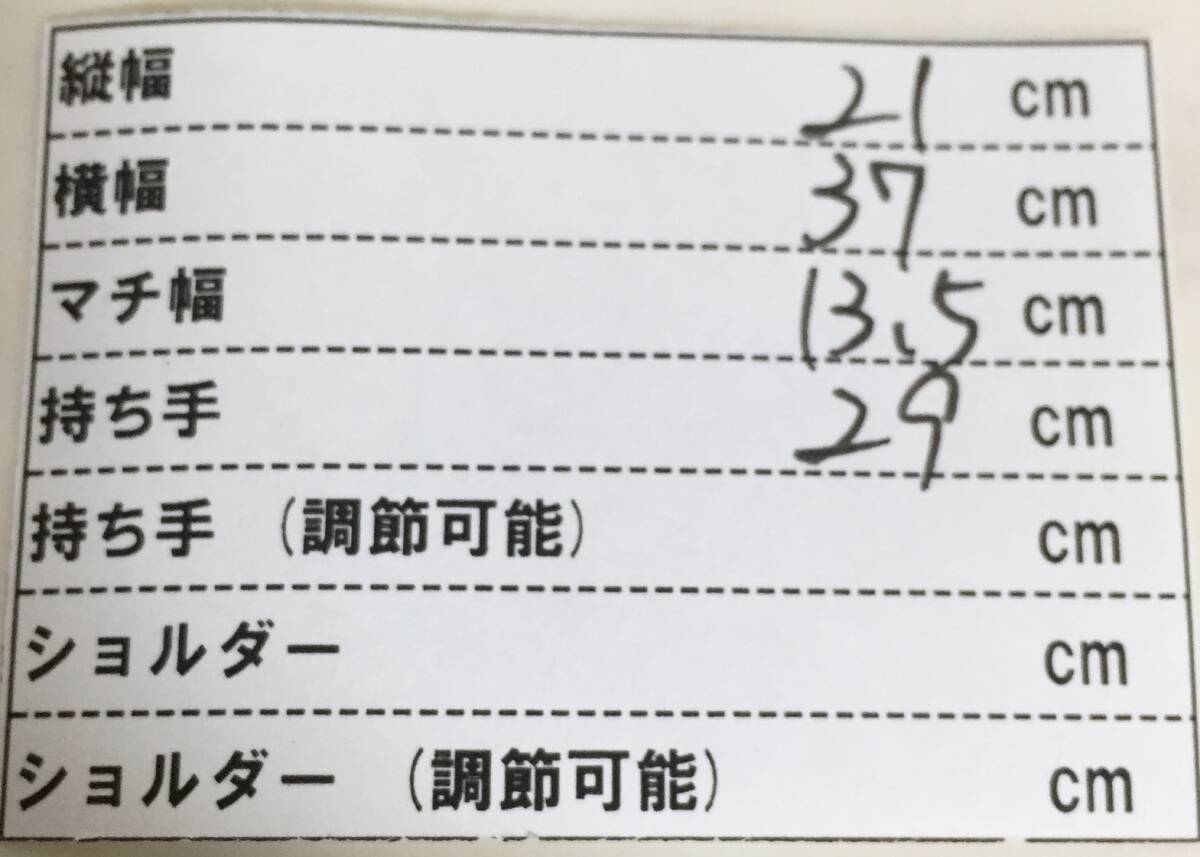 縦幅 21 cm
横幅 37 cm
マチ幅 13.5 cm
持ち手 29 cm
持ち手 (調節可能) cm
ショルダー cm
ショルダー (調節可能) cm